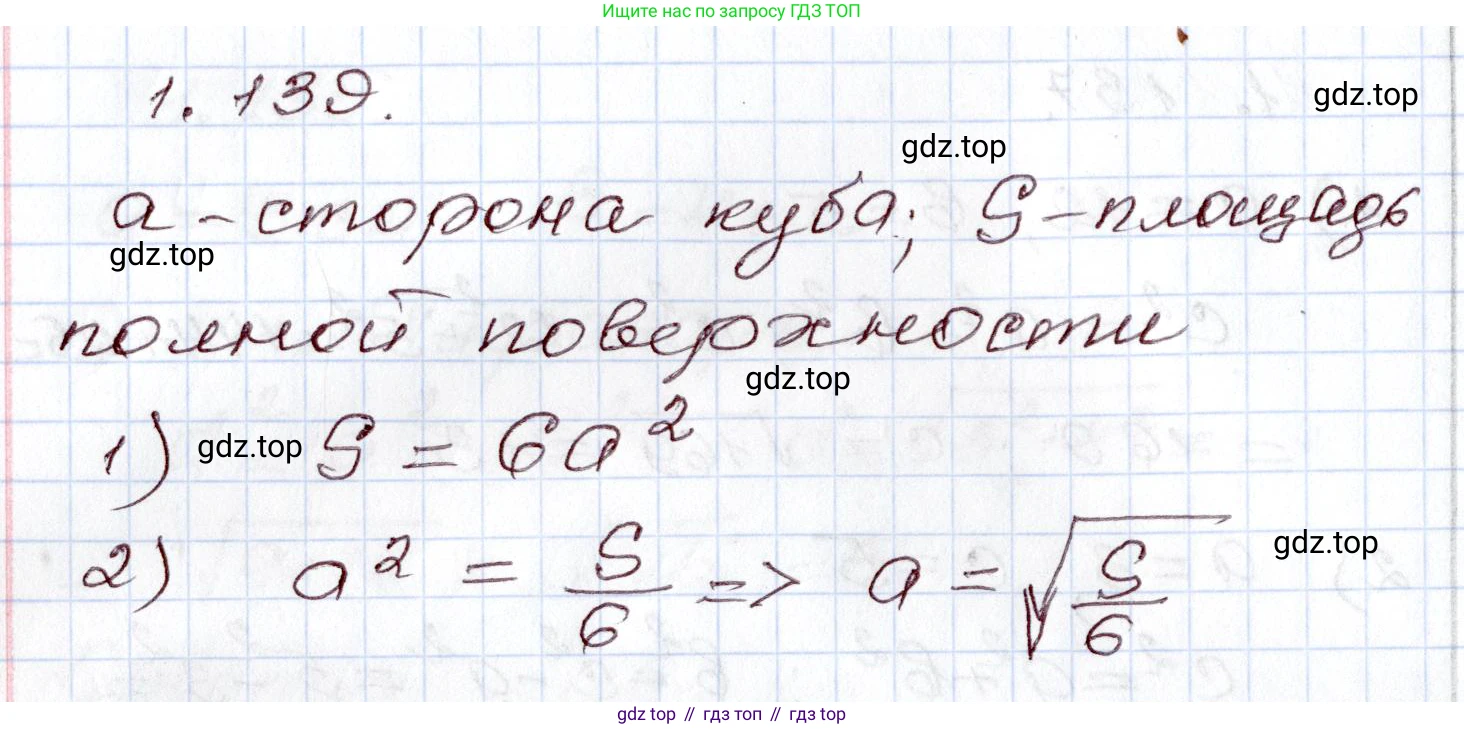 Ищите нас по запросу ГДЗ ТОП
1.139.
gdz.top
gdz.top
a - сторона куба; S - площадь
gdz.top
полной поверхности
gdz.top
1) gdz.top S = 6a²
2) a² = S/6 => a = √(S/6)
gdz.top
gdz top // гдз топ // gdz top